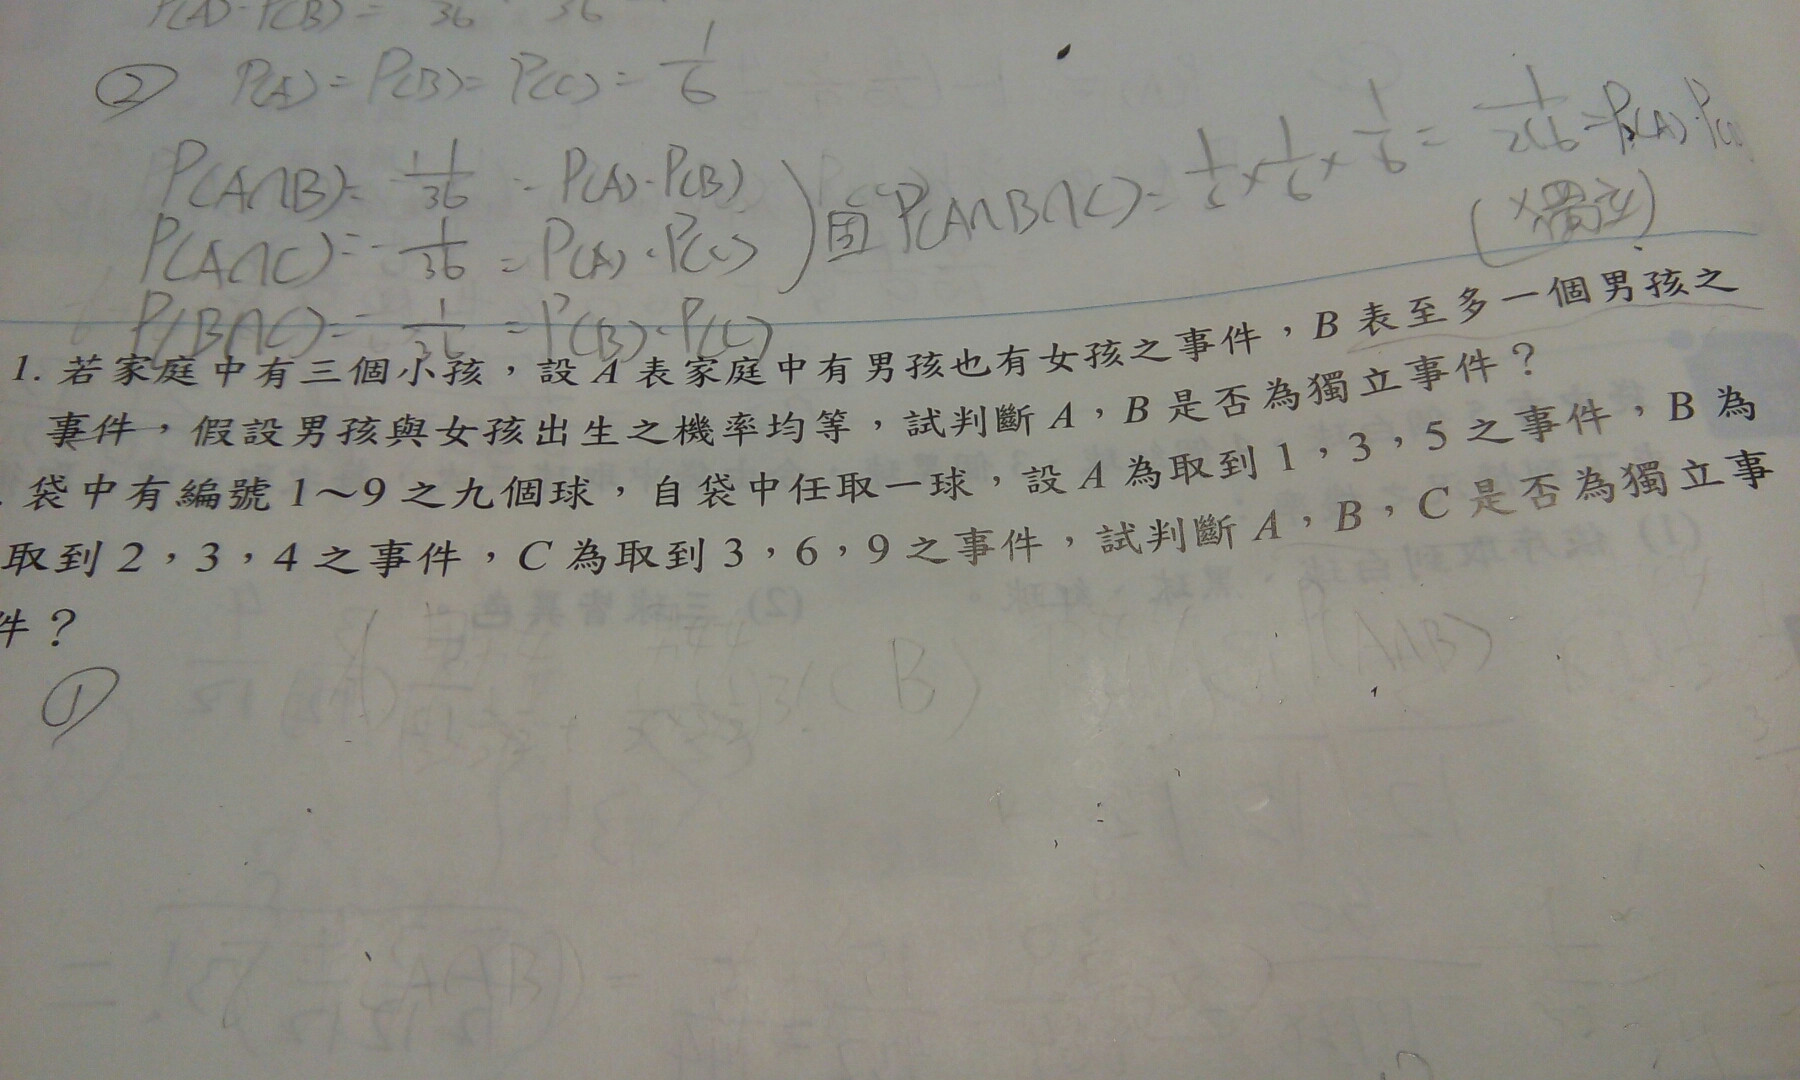 P(A)·P(B)= 36 36
② P(A)=P(B)=P(C)=1/6
P(A∩B)=1/36=P(A)·P(B)
P(A∩C)=1/36=P(A)·P(C) ) 因 P(A∩B∩C)=1/6×1/6×1/6=1/216=P(A)·P(
(×獨立)
P(B∩C)=1/36=P(B)·P(C)
1. 若家庭中有三個小孩，設 A 表家庭中有男孩也有女孩之事件，B 表至多一個男孩之
事件，假設男孩與女孩出生之機率均等，試判斷 A，B 是否為獨立事件？
. 袋中有編號 1～9 之九個球，自袋中任取一球，設 A 為取到 1，3，5 之事件，B 為
取到 2，3，4 之事件，C 為取到 3，6，9 之事件，試判斷 A，B，C 是否為獨立事
件？
①